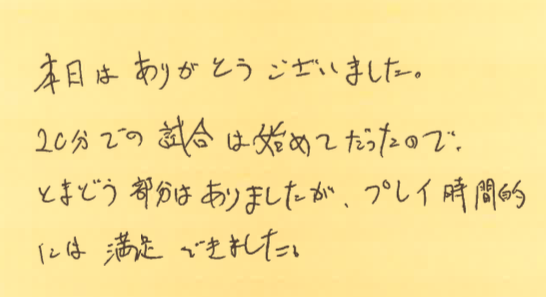 本日はありがとうございました。
20分での試合は始めてだったので、
とまどう部分はありましたが、プレイ時間的
には満足できました。